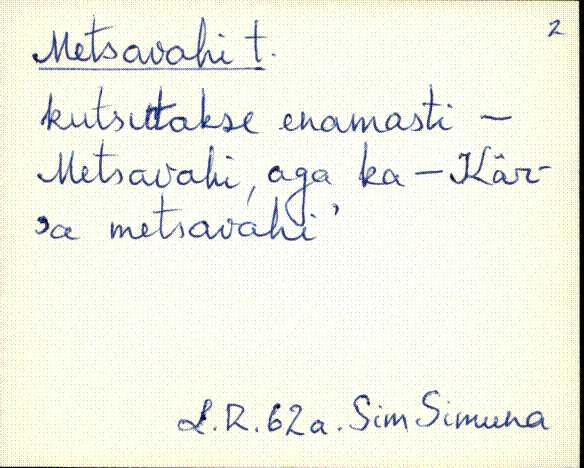 2
Metsavahi t.
kutsutakse enamasti –
Metsavahi, aga ka – Kär-
sa metsavahi'
L.R.62a. Sim Simuna